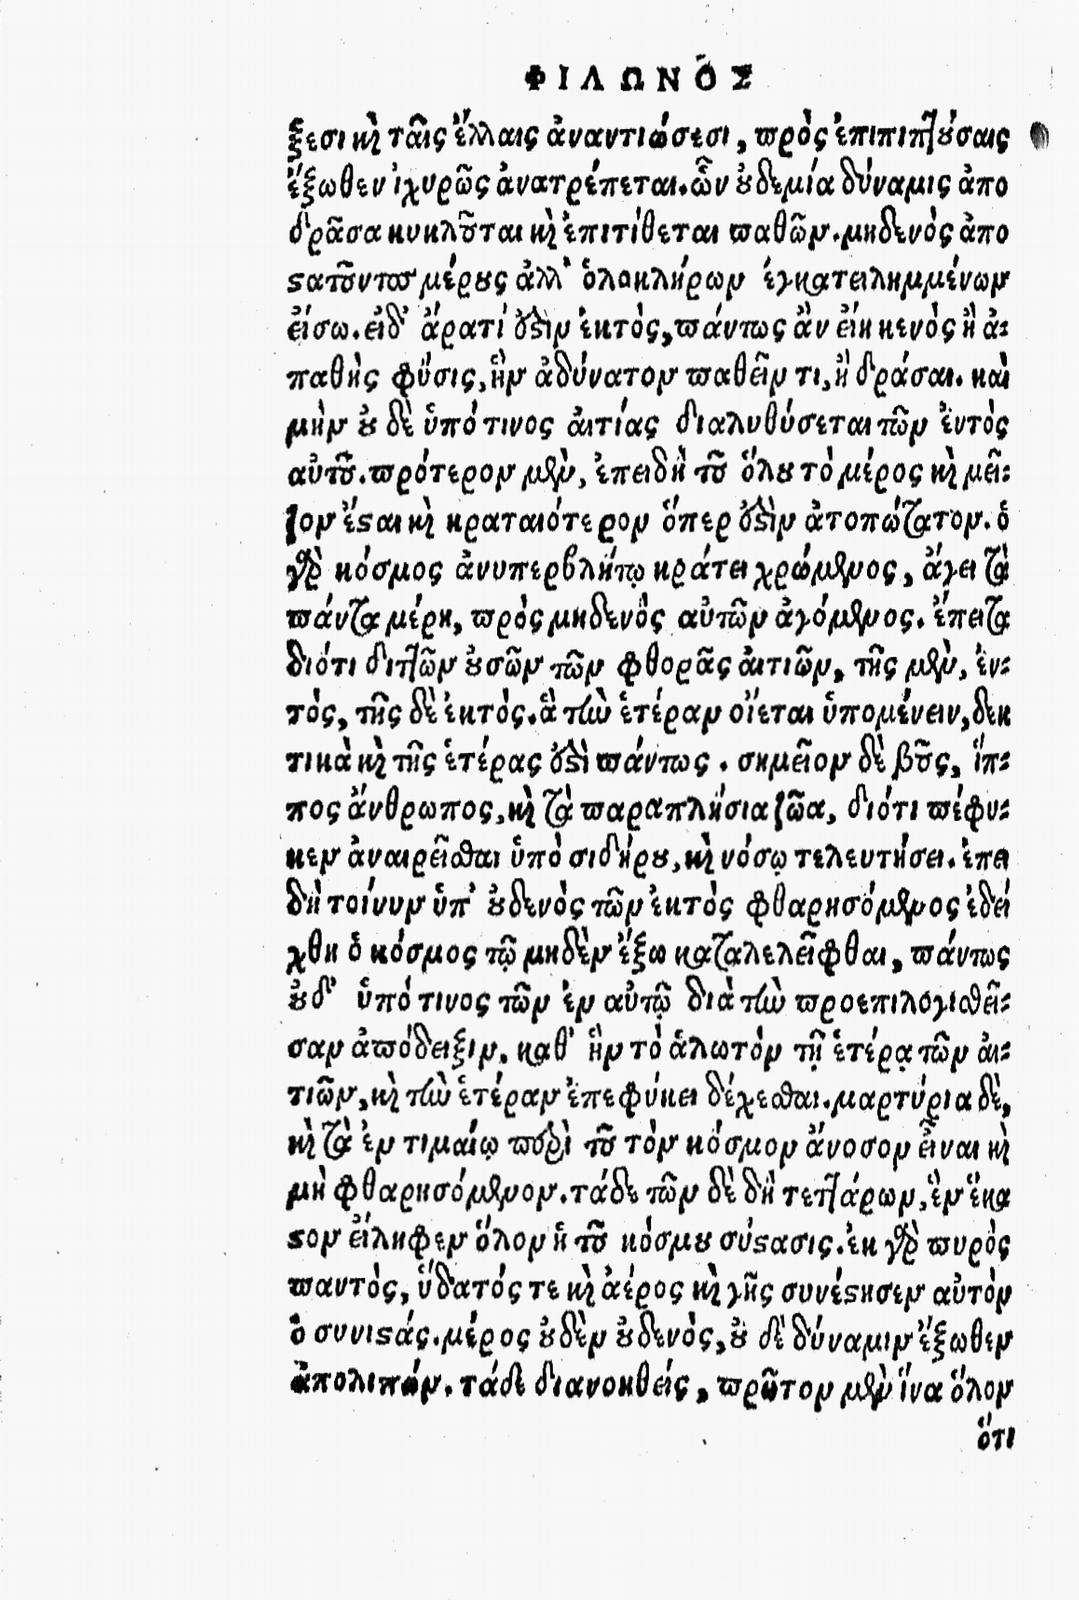 ΦΙΛΩΝΟΣ
ξεσι καὶ ταῖς ἄλλαις ἀναντιώσεσι, πρὸς ἐπιπιπτούσαις
ἔξωθεν ἰχυρῶς ἀνατρέπεται. ὧν οὐδεμία δύναμις ἀπο
δρᾶσα κυκλοῦται καὶ ἐπιτίθεται παθῶν. μηδενὸς ἀπο
στατοῦντος μέρους ἀλλ' ὁλοκλήρων ἐγκατειλημμένων
εἴσω. εἰ δ' ἄρα τί ὅστιν ἐκτὸς, πάντως ἂν εἴη κενὸς ἢ ἀ-
παθὴς φύσις, ἣν ἀδύνατον παθεῖν τι, ἢ δράσαι. καὶ
μὴν οὐ δὲ ὑπό τινος αἰτίας διαλυθύσεται τῶν ἐντὸς
αὐτοῦ. πρότερον μὲν, ἐπειδὴ τοῦ ὅλου τὸ μέρος καὶ μεῖ-
ζον ἔσται καὶ κραταιότερον ὅπερ ὅστιν ἀτοπώτατον. ὁ
γὰρ κόσμος ἀνυπερβλήτῳ κράτει χρώμενος, ἄγει τὰ
πάντα μέρη, πρὸς μηδενὸς αὐτῶν ἀγόμενος. ἔπειτα
διότι διττῶν οὐσῶν τῶν φθορᾶς αἰτιῶν, τῆς μὲν, ἐν-
τὸς, τῆς δὲ ἐκτὸς. ἃ τὴν ἑτέραν οἴεται ὑπομένειν, δεκ
τικὰ καὶ τῆς ἑτέρας ὅστι πάντως. σημεῖον δὲ βοῦς, ἵπ-
πος ἄνθρωπος, καὶ τὰ παραπλήσια ζῶα, διότι πέφυ-
κεν ἀναιρεῖσθαι ὑπὸ σιδήρου, καὶ νόσῳ τελευτήσει. ἐπει
δὴ τοίνυν ὑπ' οὐδενὸς τῶν ἐκτὸς φθαρησόμενος ἐδεί
χθη ὁ κόσμος τῷ μηδὲν ἔξω καταλελεῖφθαι, πάντως
οὐδ' ὑπό τινος τῶν ἐν αὐτῷ διὰ τὴν προεπιλογισθεῖ-
σαν ἀπόδειξιν. καθ' ἣν τὸ ἁλωτὸν τῇ ἑτέρᾳ τῶν αἰ-
τιῶν, καὶ τὴν ἑτέραν ἐπεφύκει δέχεσθαι. μαρτύρια δὲ,
καὶ τὰ ἐν τιμαίῳ περὶ τοῦ τὸν κόσμον ἄνοσον εἶναι καὶ
μὴ φθαρησόμενον. τάδε τῶν δὲ δὴ τεττάρων, ἓν ἕκα
στον εἴληφεν ὅλον ἡ τοῦ κόσμου σύστασις. ἐκ γὰρ πυρὸς
παντὸς, ὕδατός τε καὶ ἀέρος καὶ γῆς συνέστησεν αὐτὸν
ὁ συνιστάς. μέρος οὐδὲν οὐδενὸς, οὐ δὲ δύναμιν ἔξωθεν
ἀπολιπών. τάδε διανοηθείς, πρῶτον μὲν ἵνα ὅλον
ὅτι